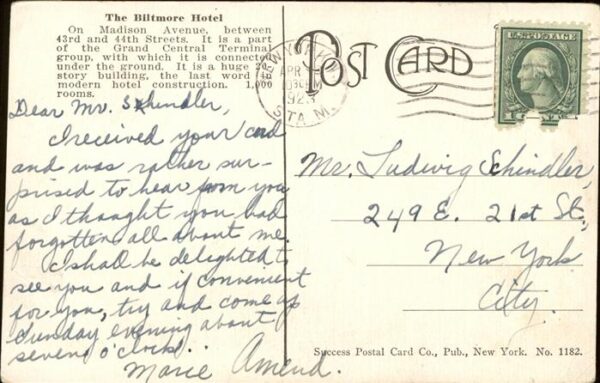 The Biltmore Hotel
On Madison Avenue, between
43rd and 44th Streets. It is a part
of the Grand Central Terminal
group, with which it is connected
under the ground. It is a huge
story building, the last word in
modern hotel construction. 1,000
rooms.
Dear Mr. Schindler,
I received your card
and was rather sur-
prised to hear from you
as I thought you had
forgotten all about me.
I shall be delighted to
see you and if convenient
for you, try and come up
Sunday evening about
seven o'clock...
Marie Amend.
POST CARD
NEW YORK
APR
1923
STA. M.
U.S. POSTAGE
Mr. Ludwig Schindler,
249 E. 21st St.,
New York
City.
Success Postal Card Co., Pub., New York. No. 1182.